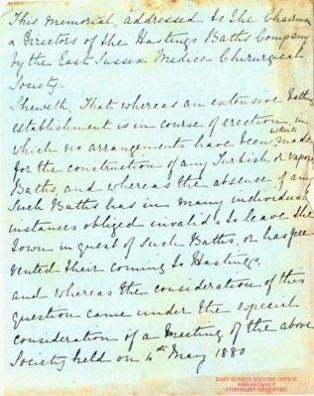 This Memorial, addressed to the Chairman
& Directors of the Hastings Baths Company
by the East Sussex Medico Chirurgical
Society.
Sheweth, That whereas an extensive Bathing
establishment is in course of erection, in
which no arrangements have been made
for the construction of any Turkish or vapour
Baths, and whereas the absence of any
Such Baths has in many individual
instances obliged invalids to leave the
Town in quest of Such Baths, or has pre-
vented their coming to Hastings,
and whereas the consideration of this
question came under the especial
consideration of a Meeting of the above
Society held on 4th May 1880
EAST SUSSEX RECORD OFFICE
COPYRIGHT RESERVED